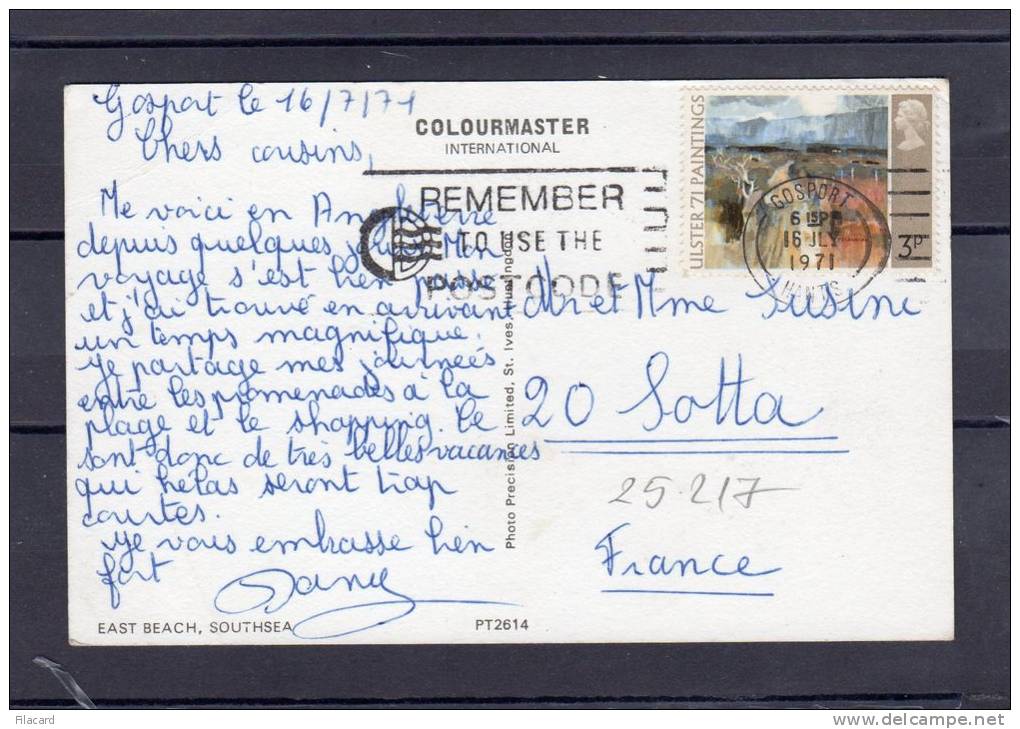 Gosport le 16/7/71
Chers cousins,
Me voici en Angleterre
depuis quelques jours. Mon
voyage s'est bien passé
et j'ai trouvé en arrivant
un temps magnifique.
Je partage mes journées
entre les promenades à la
plage et le shopping. Ce
sont donc de très belles vacances
qui hélas seront trop
courtes.
Je vous embrasse bien
fort
Dany
EAST BEACH, SOUTHSEA
PT2614
COLOURMASTER
INTERNATIONAL
REMEMBER
TO USE THE
POSTCODE
Photo Precision Limited, St. Ives, Huntingdon
ULSTER '71 PAINTINGS
3p
GOSPORT
6 15 PM
16 JLY
1971
HANTS
Mr et Mme Susini
20 Sotta
25.217
France
Filacard
www.delcampe.net